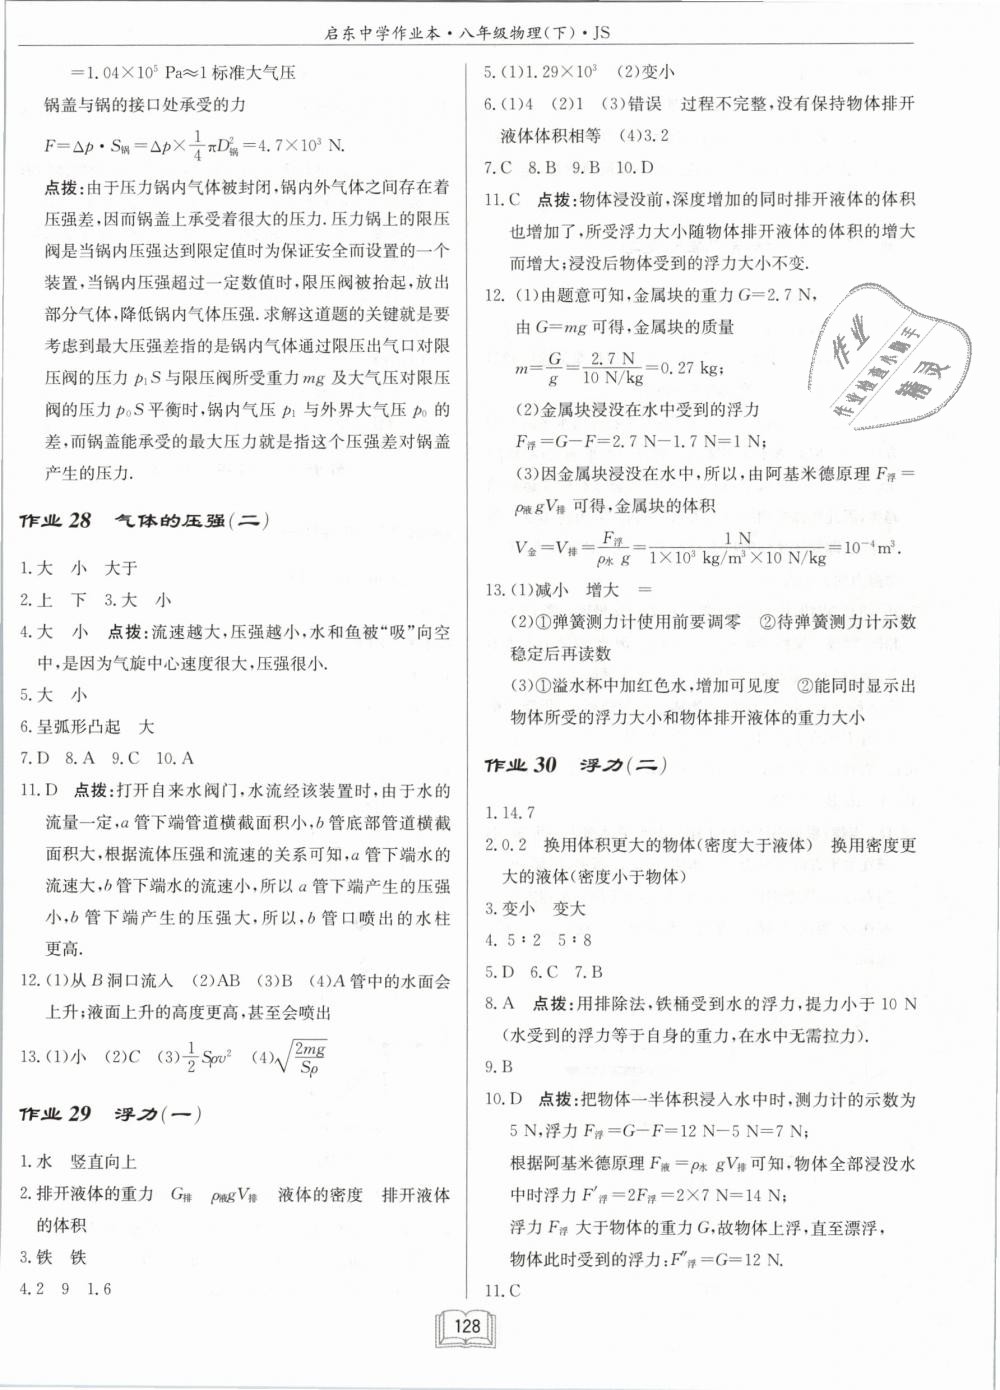 启东中学作业本·八年级物理(下)·JS
=1.04×10⁵ Pa≈1标准大气压
锅盖与锅的接口处承受的力
F=△p·S锅=△p×1/4πD²锅=4.7×10³ N.
点拨:由于压力锅内气体被封闭,锅内外气体之间存在着
压强差,因而锅盖上承受着很大的压力.压力锅上的限压
阀是当锅内压强达到限定值时为保证安全而设置的一个
装置,当锅内压强超过一定数值时,限压阀被抬起,放出
部分气体,降低锅内气体压强.求解这道题的关键就是要
考虑到最大压强差指的是锅内气体通过限压出气口对限
压阀的压力p₁S与限压阀所受重力mg及大气压对限压
阀的压力p₀S平衡时,锅内气压p₁与外界大气压p₀的
差,而锅盖能承受的最大压力就是指这个压强差对锅盖
产生的压力.
作业28 气体的压强(二)
1.大 小 大于
2.上 下 3.大 小
4.大 小 点拨:流速越大,压强越小,水和鱼被“吸”向空
中,是因为气旋中心速度很大,压强很小.
5.大 小
6.呈弧形凸起 大
7.D 8.A 9.C 10.A
11.D 点拨:打开自来水阀门,水流经该装置时,由于水的
流量一定,a管下端管道横截面积小,b管底部管道横截
面积大,根据流体压强和流速的关系可知,a管下端水的
流速大,b管下端水的流速小,所以a管下端产生的压强
小,b管下端产生的压强大,所以,b管口喷出的水柱
更高.
12.(1)从B洞口流入 (2)AB (3)B (4)A管中的水面会
上升;液面上升的高度更高,甚至会喷出
13.(1)小 (2)C (3)1/2Sρv² (4)√(2mg/Sρ)
作业29 浮力(一)
1.水 竖直向上
2.排开液体的重力 G排 ρ液gV排 液体的密度 排开液体
的体积
3.铁 铁
4.2 9 1.6
5.(1)1.29×10³ (2)变小
6.(1)4 (2)1 (3)错误 过程不完整,没有保持物体排开
液体体积相等 (4)3.2
7.C 8.B 9.B 10.D
11.C 点拨:物体浸没前,深度增加的同时排开液体的体积
也增加了,所受浮力大小随物体排开液体的体积的增大
而增大;浸没后物体受到的浮力大小不变.
12.(1)由题意可知,金属块的重力G=2.7 N,
由G=mg可得,金属块的质量
m=G/g=2.7 N/10 N/kg=0.27 kg;
(2)金属块浸没在水中受到的浮力
F浮=G-F=2.7 N-1.7 N=1 N;
(3)因金属块浸没在水中,所以,由阿基米德原理F浮=
ρ液gV排可得,金属块的体积
V金=V排=F浮/ρ水 g=1 N/1×10³ kg/m³×10 N/kg=10⁻⁴m³.
13.(1)减小 增大 =
(2)①弹簧测力计使用前要调零 ②待弹簧测力计示数
稳定后再读数
(3)①溢水杯中加红色水,增加可见度 ②能同时显示出
物体所受的浮力大小和物体排开液体的重力大小
作业30 浮力(二)
1.14.7
2.0.2 换用体积更大的物体(密度大于液体) 换用密度更
大的液体(密度小于物体)
3.变小 变大
4.5∶2 5∶8
5.D 6.C 7.B
8.A 点拨:用排除法,铁桶受到水的浮力,提力小于10 N
(水受到的浮力等于自身的重力,在水中无需拉力).
9.B
10.D 点拨:把物体一半体积浸入水中时,测力计的示数为
5 N,浮力F浮=G-F=12 N-5 N=7 N;
根据阿基米德原理F液=ρ水 gV排可知,物体全部浸没水
中时浮力F′浮=2F浮=2×7 N=14 N;
浮力F浮大于物体的重力G,故物体上浮,直至漂浮,
物体此时受到的浮力:F″浮=G=12 N.
11.C
作业
作业检查小助手
精灵
128